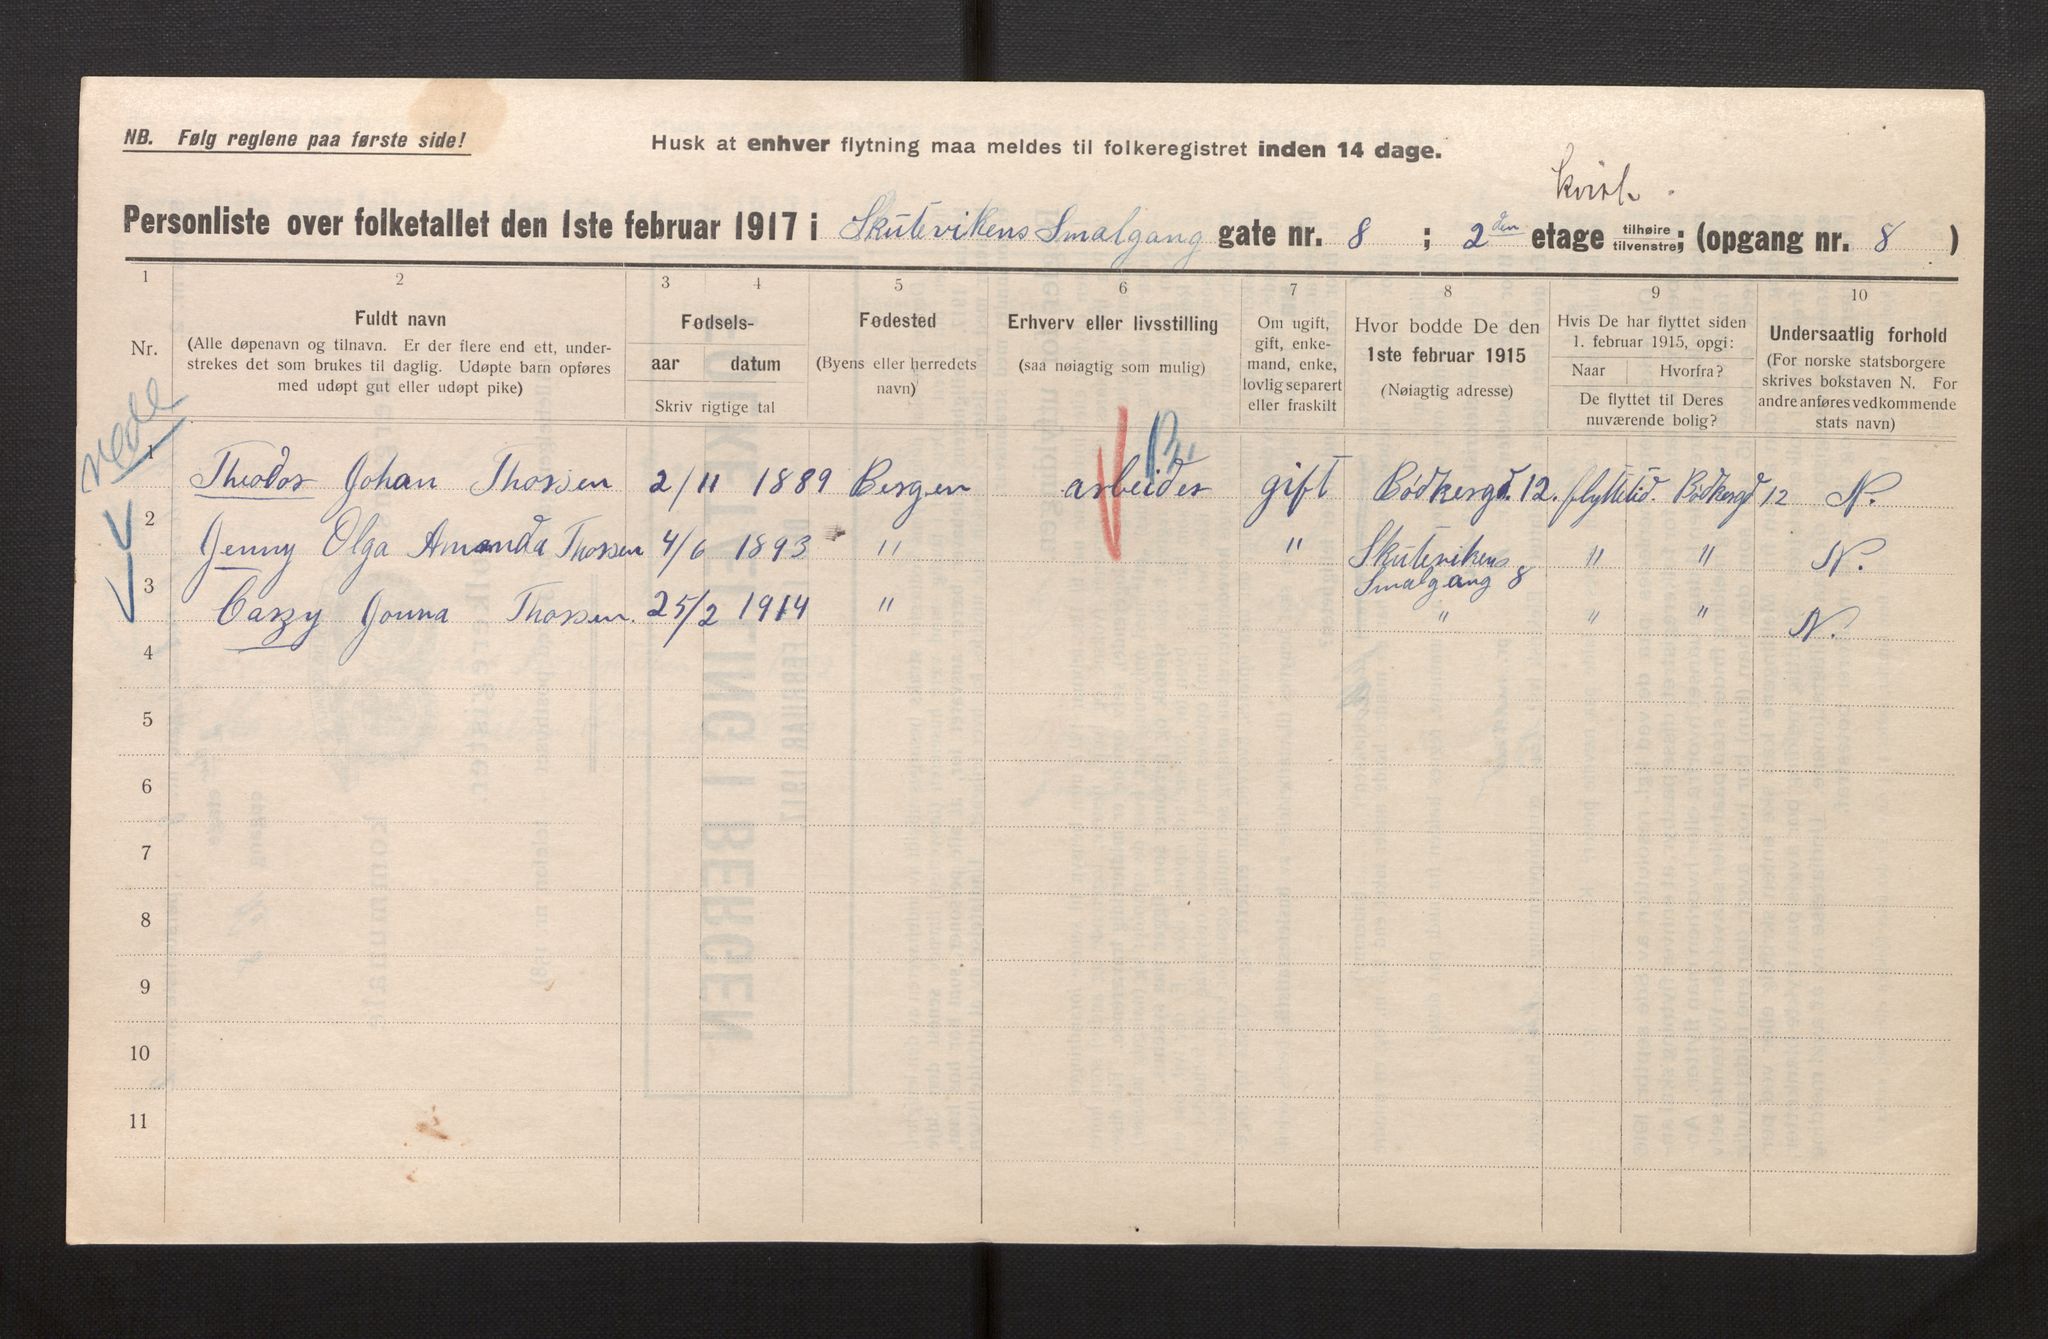 NB. Følg reglene paa første side!
Husk at enhver flytning maa meldes til folkeregistret inden 14 dage.
kvist.
Personliste over folketallet den 1ste februar 1917 i Skutevikens Smalgang gate nr. 8 ; 2den etage tilhøire tilvenstre; (opgang nr. 8 )
1 2 3 4 5 6 7 8 9 10
Nr.
Fuldt navn
(Alle døpenavn og tilnavn. Er der flere end ett, under-
strekes det som brukes til daglig. Udøpte barn opføres
med udøpt gut eller udøpt pike)
Fødsels-
aar datum
Skriv rigtige tal
Fødested
(Byens eller herredets
navn)
Erhverv eller livsstilling
(saa nøiagtig som mulig)
Om ugift,
gift, enke-
mand, enke,
lovlig separert
eller fraskilt
Hvor bodde De den
1ste februar 1915
(Nøiagtig adresse)
Hvis De har flyttet siden
1. februar 1915, opgi:
Naar Hvorfra?
De flyttet til Deres
nuværende bolig?
Undersaatlig forhold
(For norske statsborgere
skrives bokstaven N. For
andre anføres vedkommende
stats navn)
1 Theodor Johan Thorsen 2/11 1889 Bergen arbeider gift Bødkergd. 12. flyttetid. Bødkergd 12 N.
2 Jenny Olga Amanda Thorsen 4/6 1893 " " Skutevikens " " N.
Smalgang 8
3 Carry Jonna Thorsen. 25/2 1914 " " " " N.
4
5
6
7
8
9
10
11